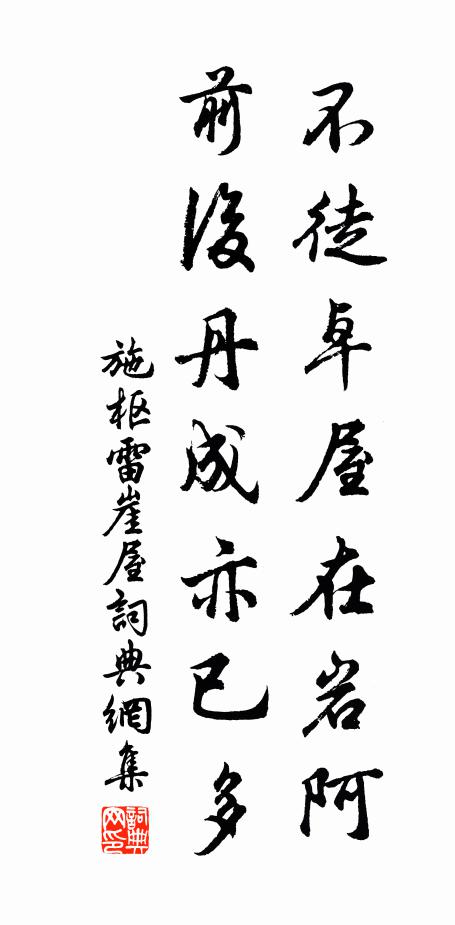 不徒卓屋在岩阿
前後丹成亦已多
施枢雷崖屋詞典網集
詞典網印